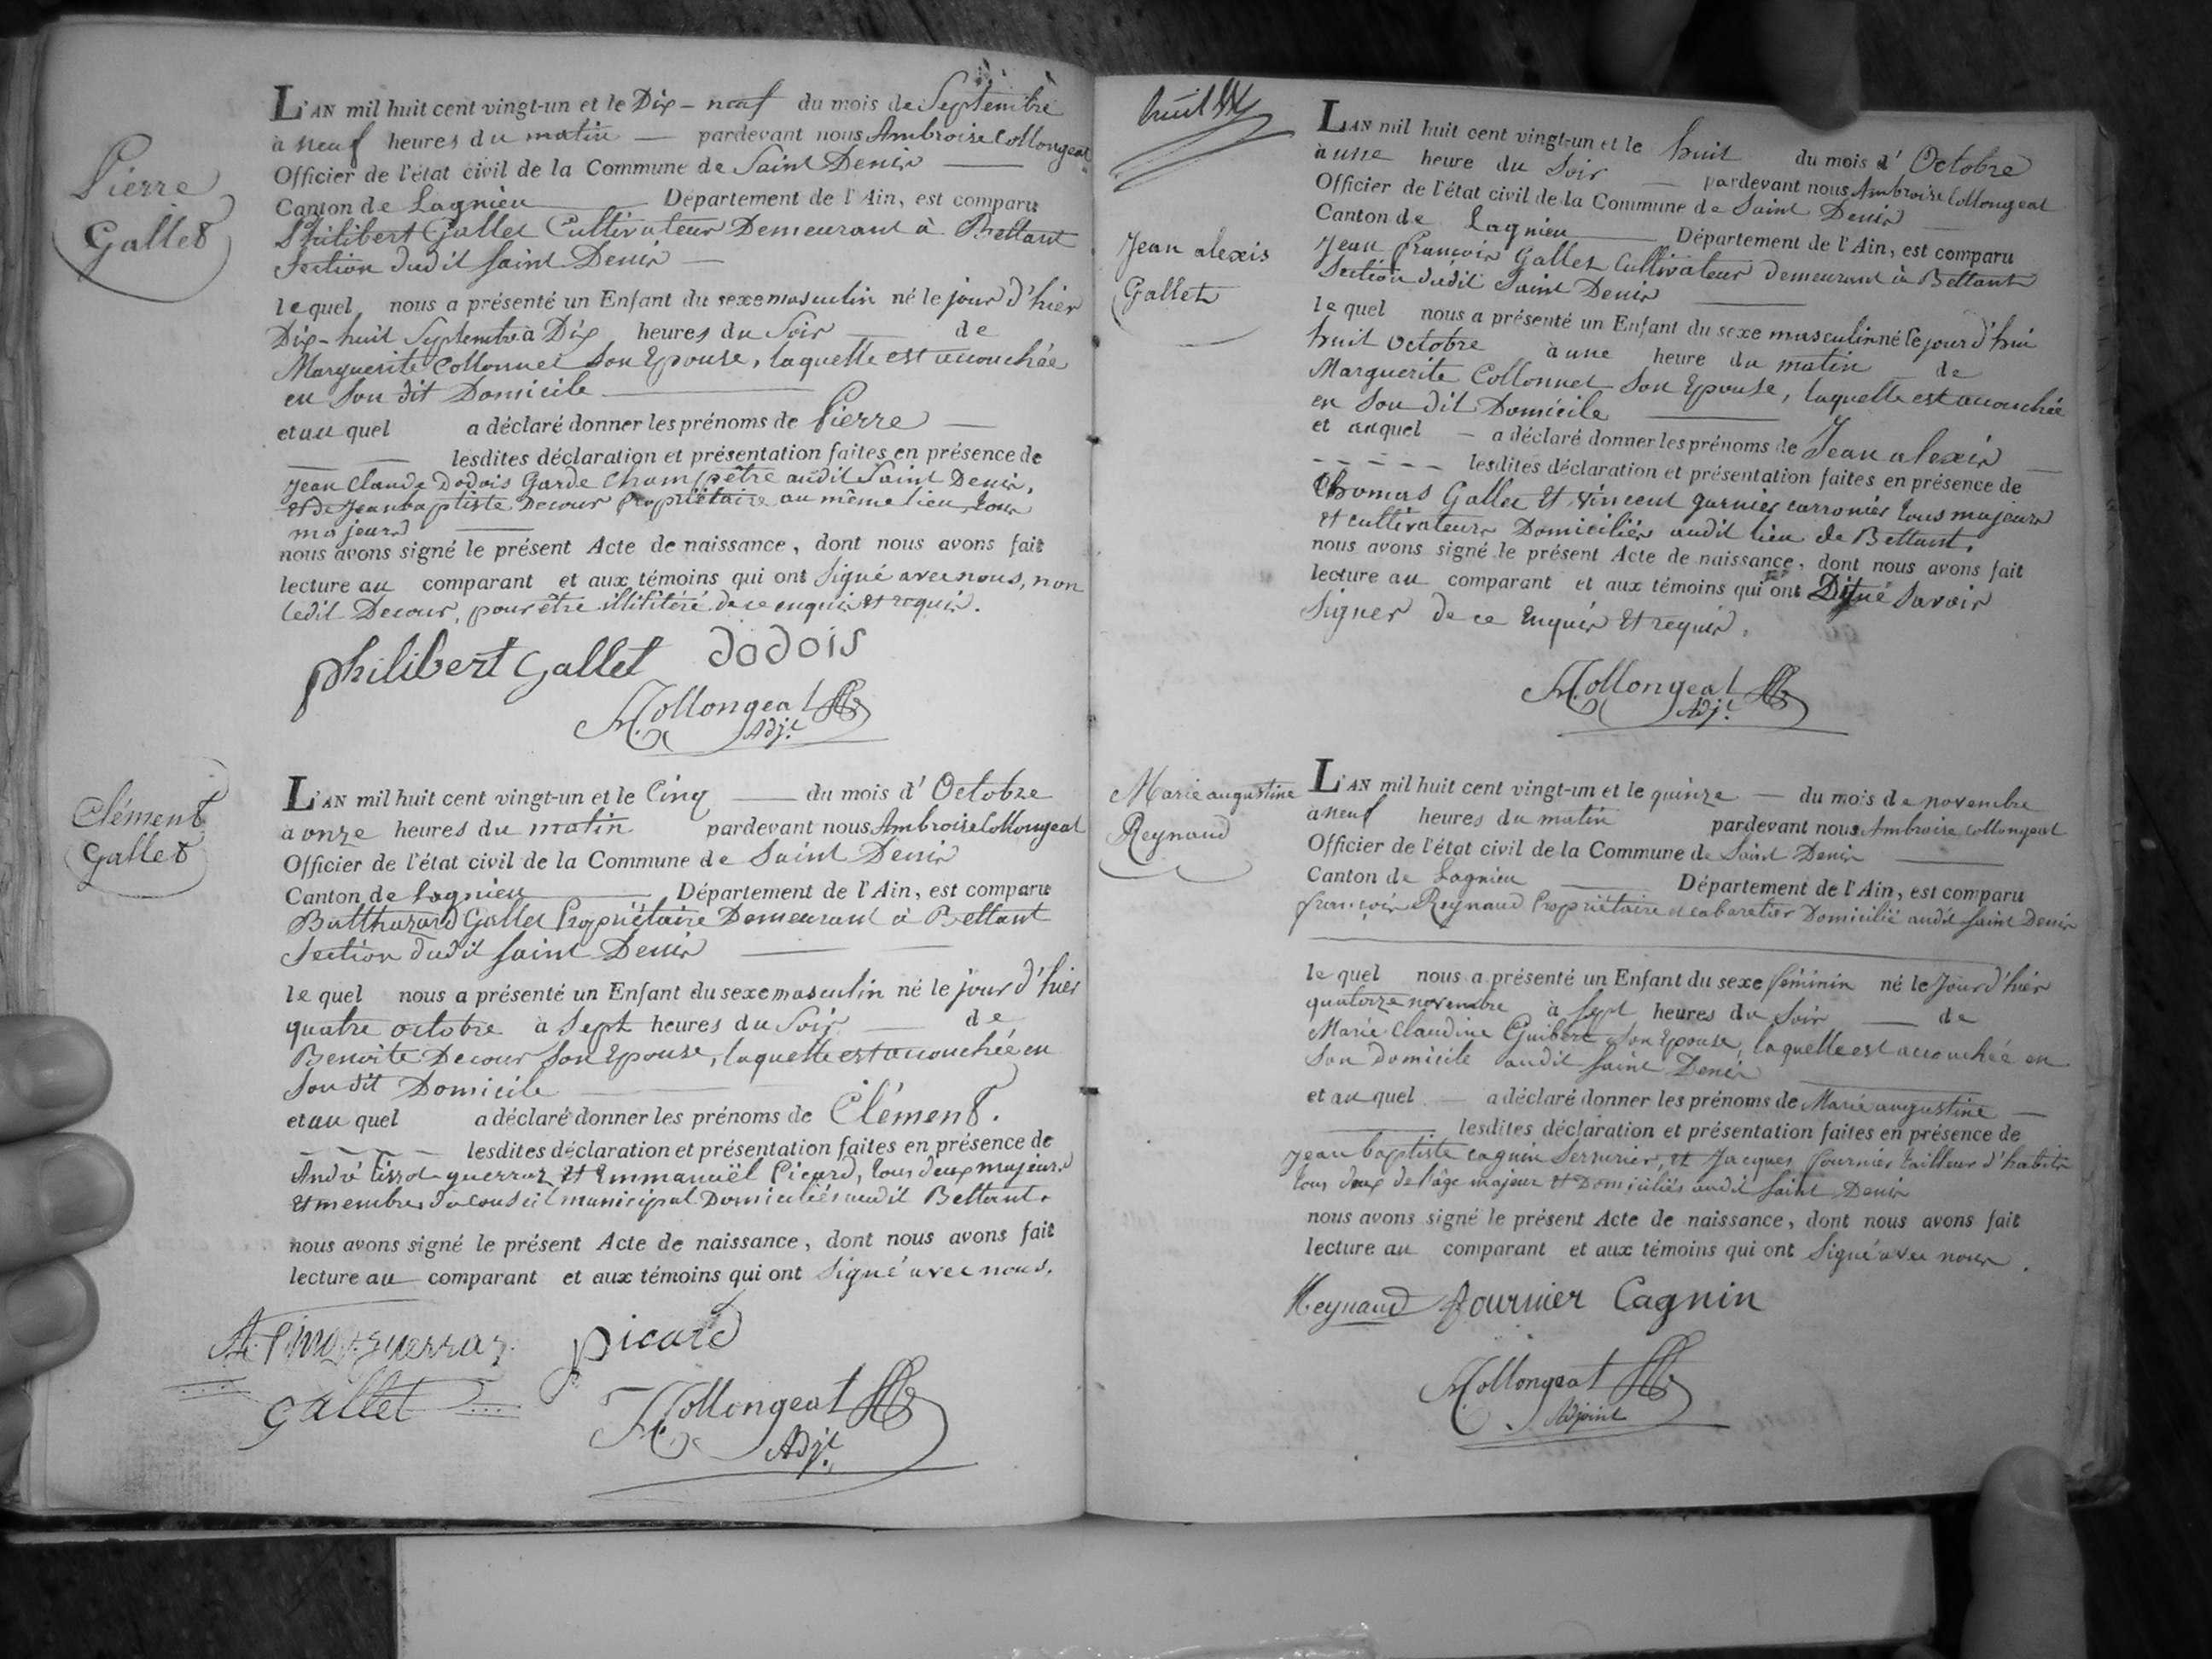 Pierre
Gallet
L'AN mil huit cent vingt-un et le Dix-neuf du mois de Septembre
à neuf heures du matin pardevant nous Ambroise Collongeat
Officier de l'état civil de la Commune de Saint Denis
Canton de Lagnieu Département de l'Ain, est comparu
Philibert Gallet Cultivateur Demeurant à Bettant
Section dudit Saint Denis
lequel nous a présenté un Enfant du sexe masculin né le jour d'hier
Dix-huit Septembre à Dix heures du Soir de
Marguerite Collonnet Son Epouse, laquelle est accouchée
en Son dit Domicile
et au quel a déclaré donner les prénoms de Pierre
lesdites déclaration et présentation faites en présence de
Jean Claude Dodois Garde Champêtre audit Saint Denis,
et de Jean baptiste Decour Propriétaire au même lieu, tous
majeurs
nous avons signé le présent Acte de naissance, dont nous avons fait
lecture au comparant et aux témoins qui ont Signé avec nous, non
ledit Decour, pour être illitéré de ce enquis et requis.
philibert Gallet dodois
Collongeat
Adj.t
Clément
Gallet
L'AN mil huit cent vingt-un et le Cinq du mois d'Octobre
à onze heures du matin pardevant nous Ambroise Collongeat
Officier de l'état civil de la Commune de Saint Denis
Canton de Lagnieu Département de l'Ain, est comparu
Balthazard Gallet Propriétaire Demeurant à Bettant
Section dudit Saint Denis
le quel nous a présenté un Enfant du sexe masculin né le jour d'hier
quatre octobre à Sept heures du Soir de
Benoite Decour Son Epouse, laquelle est accouchée en
Son dit Domicile
et au quel a déclaré donner les prénoms de Clément.
lesdites déclaration et présentation faites en présence de
André tissot guerraz et Emmanuël Picard, tous deux majeurs
et membres du Conseil municipal Domiciliés audit Bettant.
nous avons signé le présent Acte de naissance, dont nous avons fait
lecture au comparant et aux témoins qui ont Signé avec nous.
guerraz picard
gallet Collongeat
Adj.t
huit
Jean alexis
Gallet
L'AN mil huit cent vingt-un et le huit du mois d'Octobre
à une heure du Soir pardevant nous Ambroise Collongeat
Officier de l'état civil de la Commune de Saint Denis
Canton de Lagnieu Département de l'Ain, est comparu
Jean françois Gallet Cultivateur demeurant à Bettant
Section dudit Saint Denis
le quel nous a présenté un Enfant du sexe masculin né le jour d'hui
huit octobre à une heure du matin de
Marguerite Collonnet Son Epouse, laquelle est accouchée
en Son dit Domicile
et auquel a déclaré donner les prénoms de Jean alexis
lesdites déclaration et présentation faites en présence de
thomas Gallet et vincent garnier carronier tous majeurs
et cultivateurs Domiciliés audit lieu de Bettant.
nous avons signé le présent Acte de naissance, dont nous avons fait
lecture au comparant et aux témoins qui ont Savoir
Signer de ce Enquis et requis,
Collongeat
Adj.t
Marie augustine
Reynaud
L'AN mil huit cent vingt-un et le quinze du mois de novembre
à neuf heures du matin pardevant nous Ambroise collongeat
Officier de l'état civil de la Commune de Saint Denis
Canton de Lagnieu Département de l'Ain, est comparu
françois Reynaud Propriétaire et cabaretier Domicilié audit Saint Denis
le quel nous a présenté un Enfant du sexe féminin né le Jour d'hier
quatorze novembre à Sept heures du Soir de
Marie Claudine Guibert Son Epouse, laquelle est accouchée en
Son domicile audit Saint Denis
et au quel a déclaré donner les prénoms de Marie augustine
lesdites déclaration et présentation faites en présence de
Jean baptiste cagnin Serrurier, et Jacques fournier tailleur d'habits
tous deux de l'âge majeur et Domiciliés audit Saint Denis
nous avons signé le présent Acte de naissance, dont nous avons fait
lecture au comparant et aux témoins qui ont Signé avec nous.
Reynaud fournier Cagnin
Collongeat
Adjoint